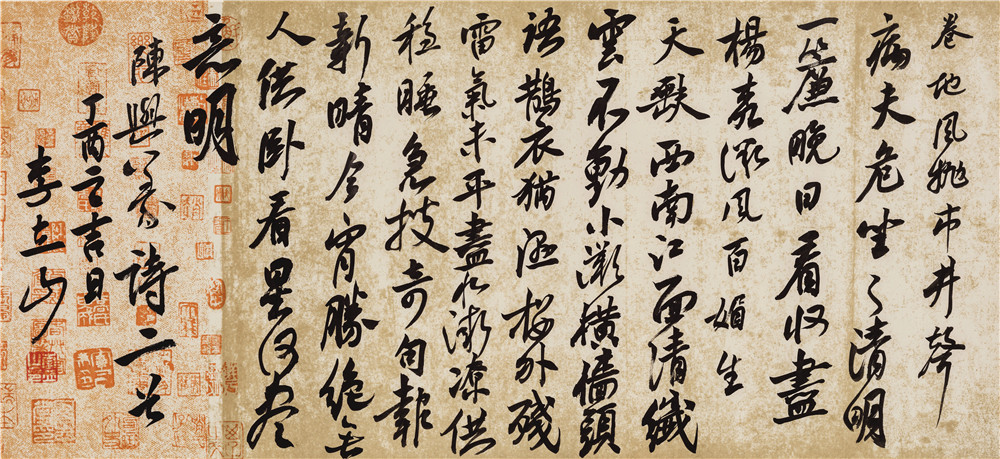 卷地風拋市井聲
病夫危坐了清明
一簾晚日看收盡
楊柳微風百媚生
天缺西南江面清纖
雲不動小灘橫墻頭
語鵲衣猶溼樓外殘
雷氣未平盡取微涼供
穩睡急搜奇句報
新晴今宵勝絕無
人供卧看星河盡
意明
陳與義詩二首
丁酉之吉日
李立山